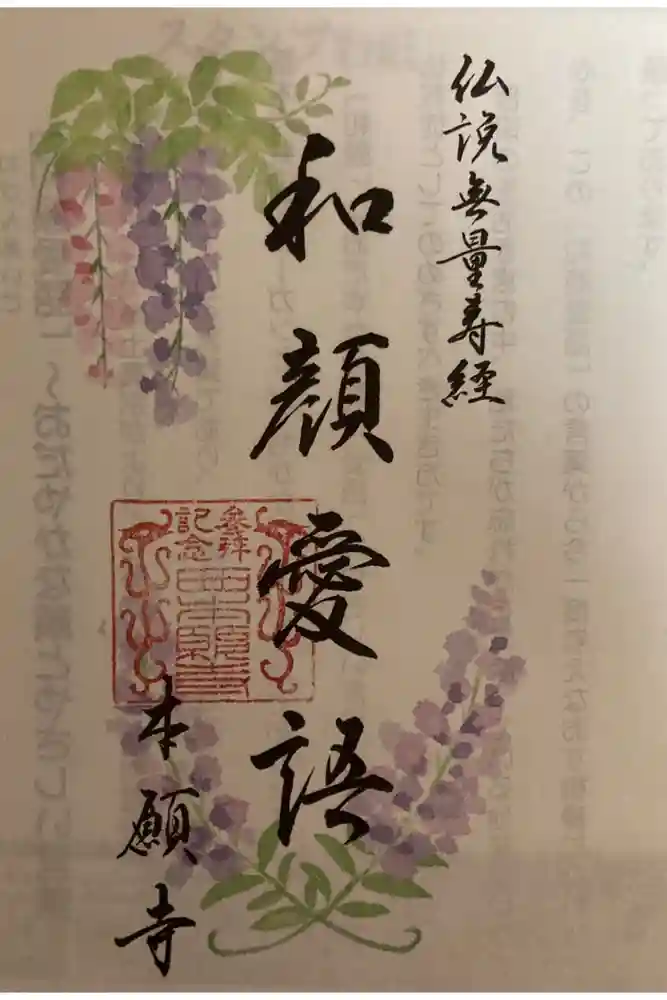 仏説無量寿経
和顔愛語
参拝
記念
西本願寺
本願寺